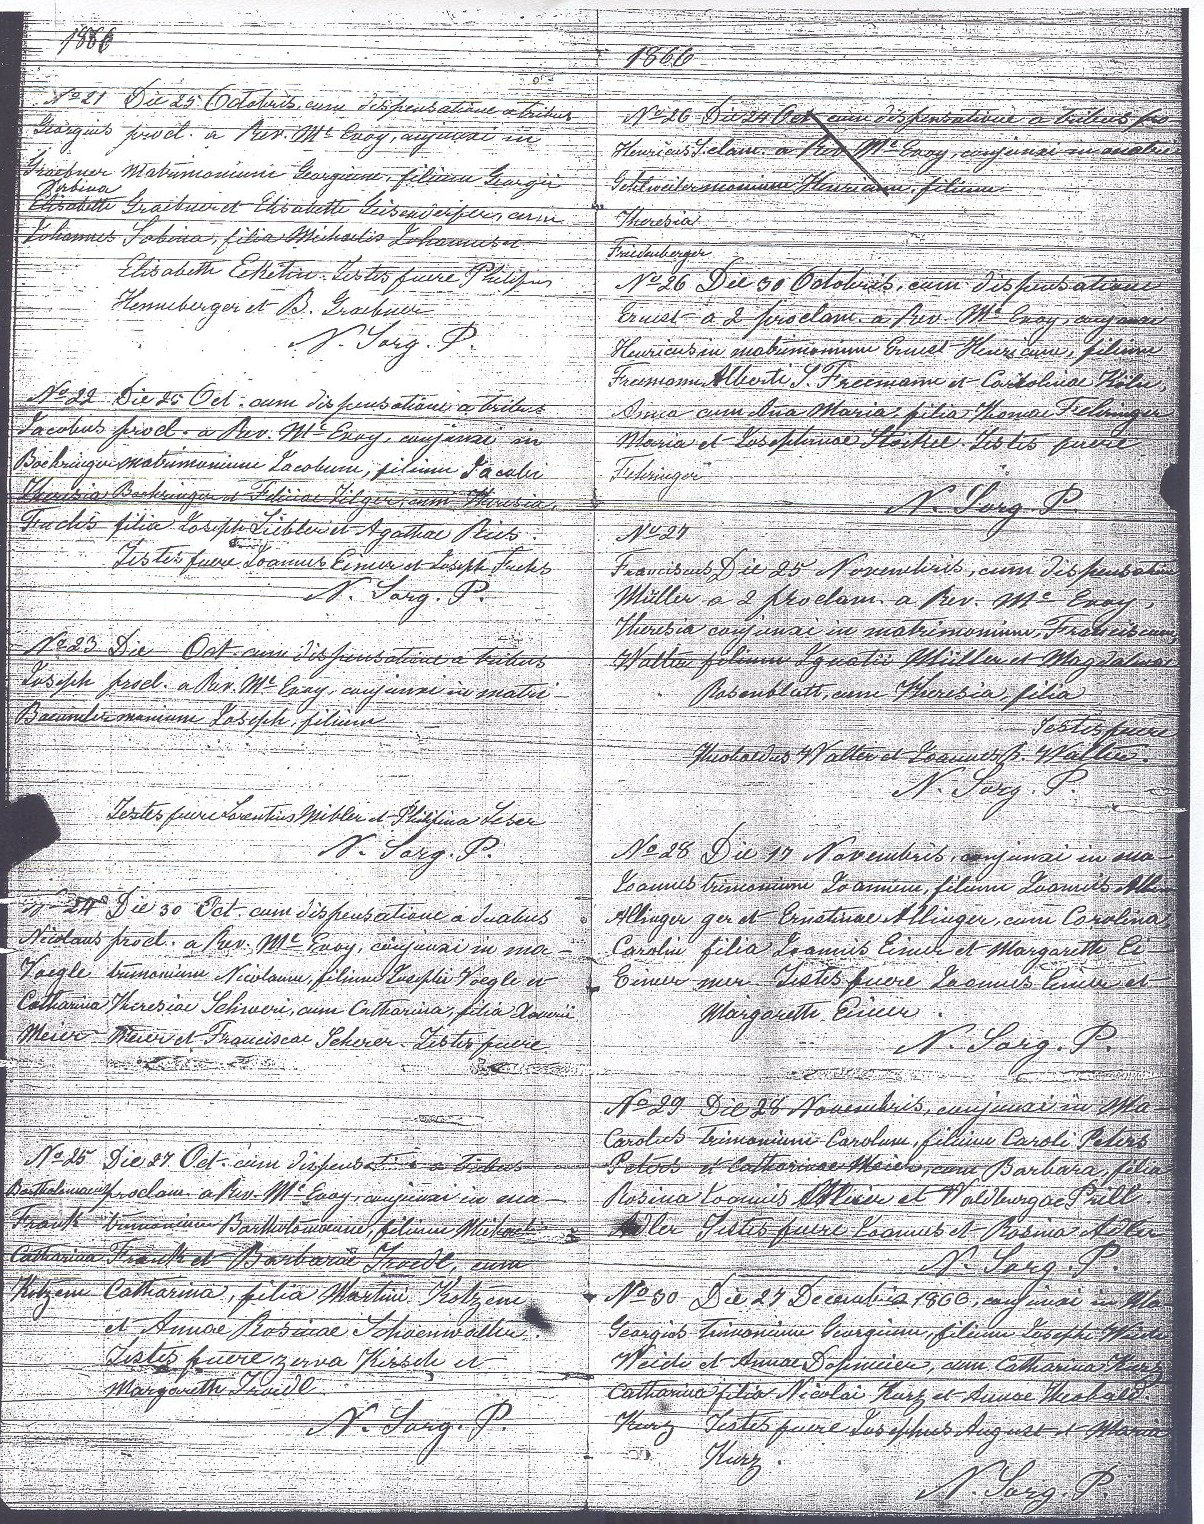 1866
No 21 Die 25 Octobris, cum dispensatione a tribus
Georgius procl. a Rev. Mc Evoy, conjunxi in
Graebner matrimonium Georgium, filium Georgii
Sabina
Elisabetta Graebner et Elisabetta Geisendörfer, cum
Johannes Sabina, filia Michaelis Johannes et
Elisabetta Eckstin. Testes fuere Philipus
Henneberger et B. Graebner
N. Sorg. P.
No 22 Die 25 Oct. cum dispensatione a tribus
Jacobus procl. a Rev. Mc Evoy, conjunxi in
Boehringer matrimonium Jacobum, filium Jacobi
Theresia Boehringer et Feliciae Jilger, cum Theresia,
Fuchs filia Joseph Liebler et Agathae Ries.
Testes fuere Joannes Eimer et Joseph Fuchs
N. Sorg. P.
No 23 Die Oct. cum dispensatione a tribus
Joseph procl. a Rev. Mc Evoy, conjunxi in matri-
Baeumler monium Joseph, filium
Testes fuere Lorentius Mibler et Philipina Leser
N. Sorg. P.
No 24 Die 30 Oct. cum dispensatione a duabus
Nicolaus procl. a Rev. Mc Evoy, conjunxi in ma-
Voegle trimonium Nicolaum, filium Josephi Voegle et
Catharina Theresiae Schweri, cum Catharina, filia Xaverii
Meier Meier et Franciscae Scherer. Testes fuere
No 25 Die 27 Oct. cum dispensatione a tribus
Bartholomaeus proclam. a Rev. Mc Evoy, conjunxi in ma-
Frank trimonium Bartholomaeum, filium Michaelis
Catharina Frank et Barbarae Troedl, cum
Kotzem Catharina, filia Martini Kotzem
et Annae Rosinae Schoenwalter.
Testes fuere Kirsch et
Margareth Troedl
N. Sorg. P.
1866
No 26 Die 24 Oct. cum dispensatione a tribus pro
Henricus S. clam. a Rev. Mc Evoy, conjunxi in matri
monium Henricum, filium
Theresia
Friedenberger
No 26 Die 30 Octobris, cum dispensatione
Ernest a 2 proclam. a Rev. Mc Evoy, conjunxi
Henricus in matrimonium Ernest Henricum, filium
Freemann Alberti S. Freemann et Carolinae
Anna cum Ana Maria, filia Thomae Fehringer
Maria et Josephinae Stoekel. Testes fuere
Fehringer
N. Sorg. P.
No 27
Franciscus Die 25 Novembris, cum dispensation
Müller a 2 proclam. a Rev. Mc Evoy,
Theresia conjunxi in matrimonium, Franciscum
Walter filium Ignatii Müller et Magdalenae
Rosenblatt, cum Theresia, filia
Testes fuere
Theobaldus Walter et Joannes B. Walter.
N. Sorg. P.
No 28 Die 17 Novembris, conjunxi in ma-
Joannes trimonium Joannem, filium Joannis Allin
Allinger ger et Ernstinae Allinger, cum Carolina,
Carolin filia Joannis Eimer et Margareth Ei-
Eimer mer. Testes fuere Joannes Eimer et
Margareth Eimer.
N. Sorg. P.
No 29 Die 28 Novembris, conjunxi in Ma-
Carolus trimonium Carolum, filium Caroli Peters
Peters et Catharinae Meich, cum Barbara, filia
Rosina Joannis Adler et Waldburgae Prill
Adler Testes fuere Joannes et Rosina Adler
N. Sorg. P.
No 30 Die 27 Decembris 1866, conjunxi in Ma
Georgius trimonium Georgium, filium Josephi Weide
Weide et Annae Dopmeier, cum Catharina Kurz
Catharina filia Nicolai Kurz et Annae Theobald
Kurz Testes fuere Josephus August et Maria
Kurz.
N. Sorg. P.